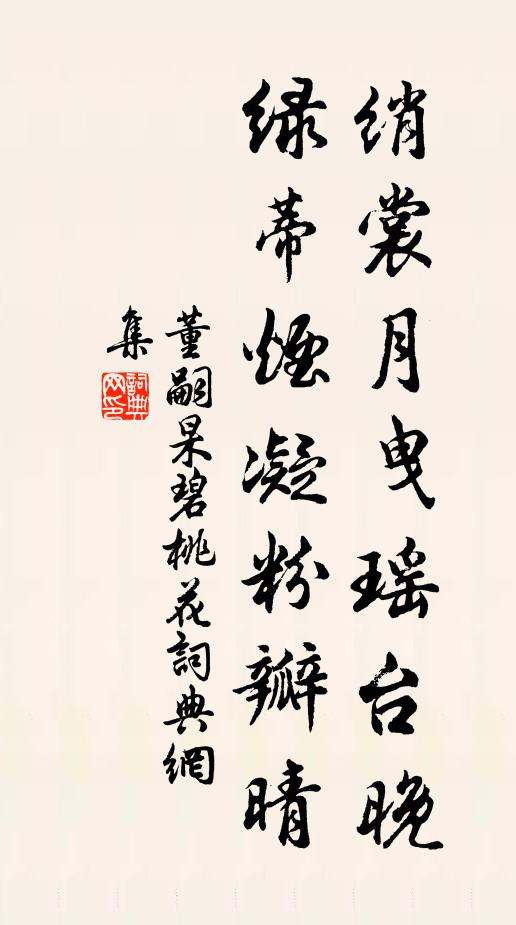 绡裳月曳瑶台晚
绿蒂煙凝粉瓣晴
董嗣杲碧桃花詞典網
集
詞典网印